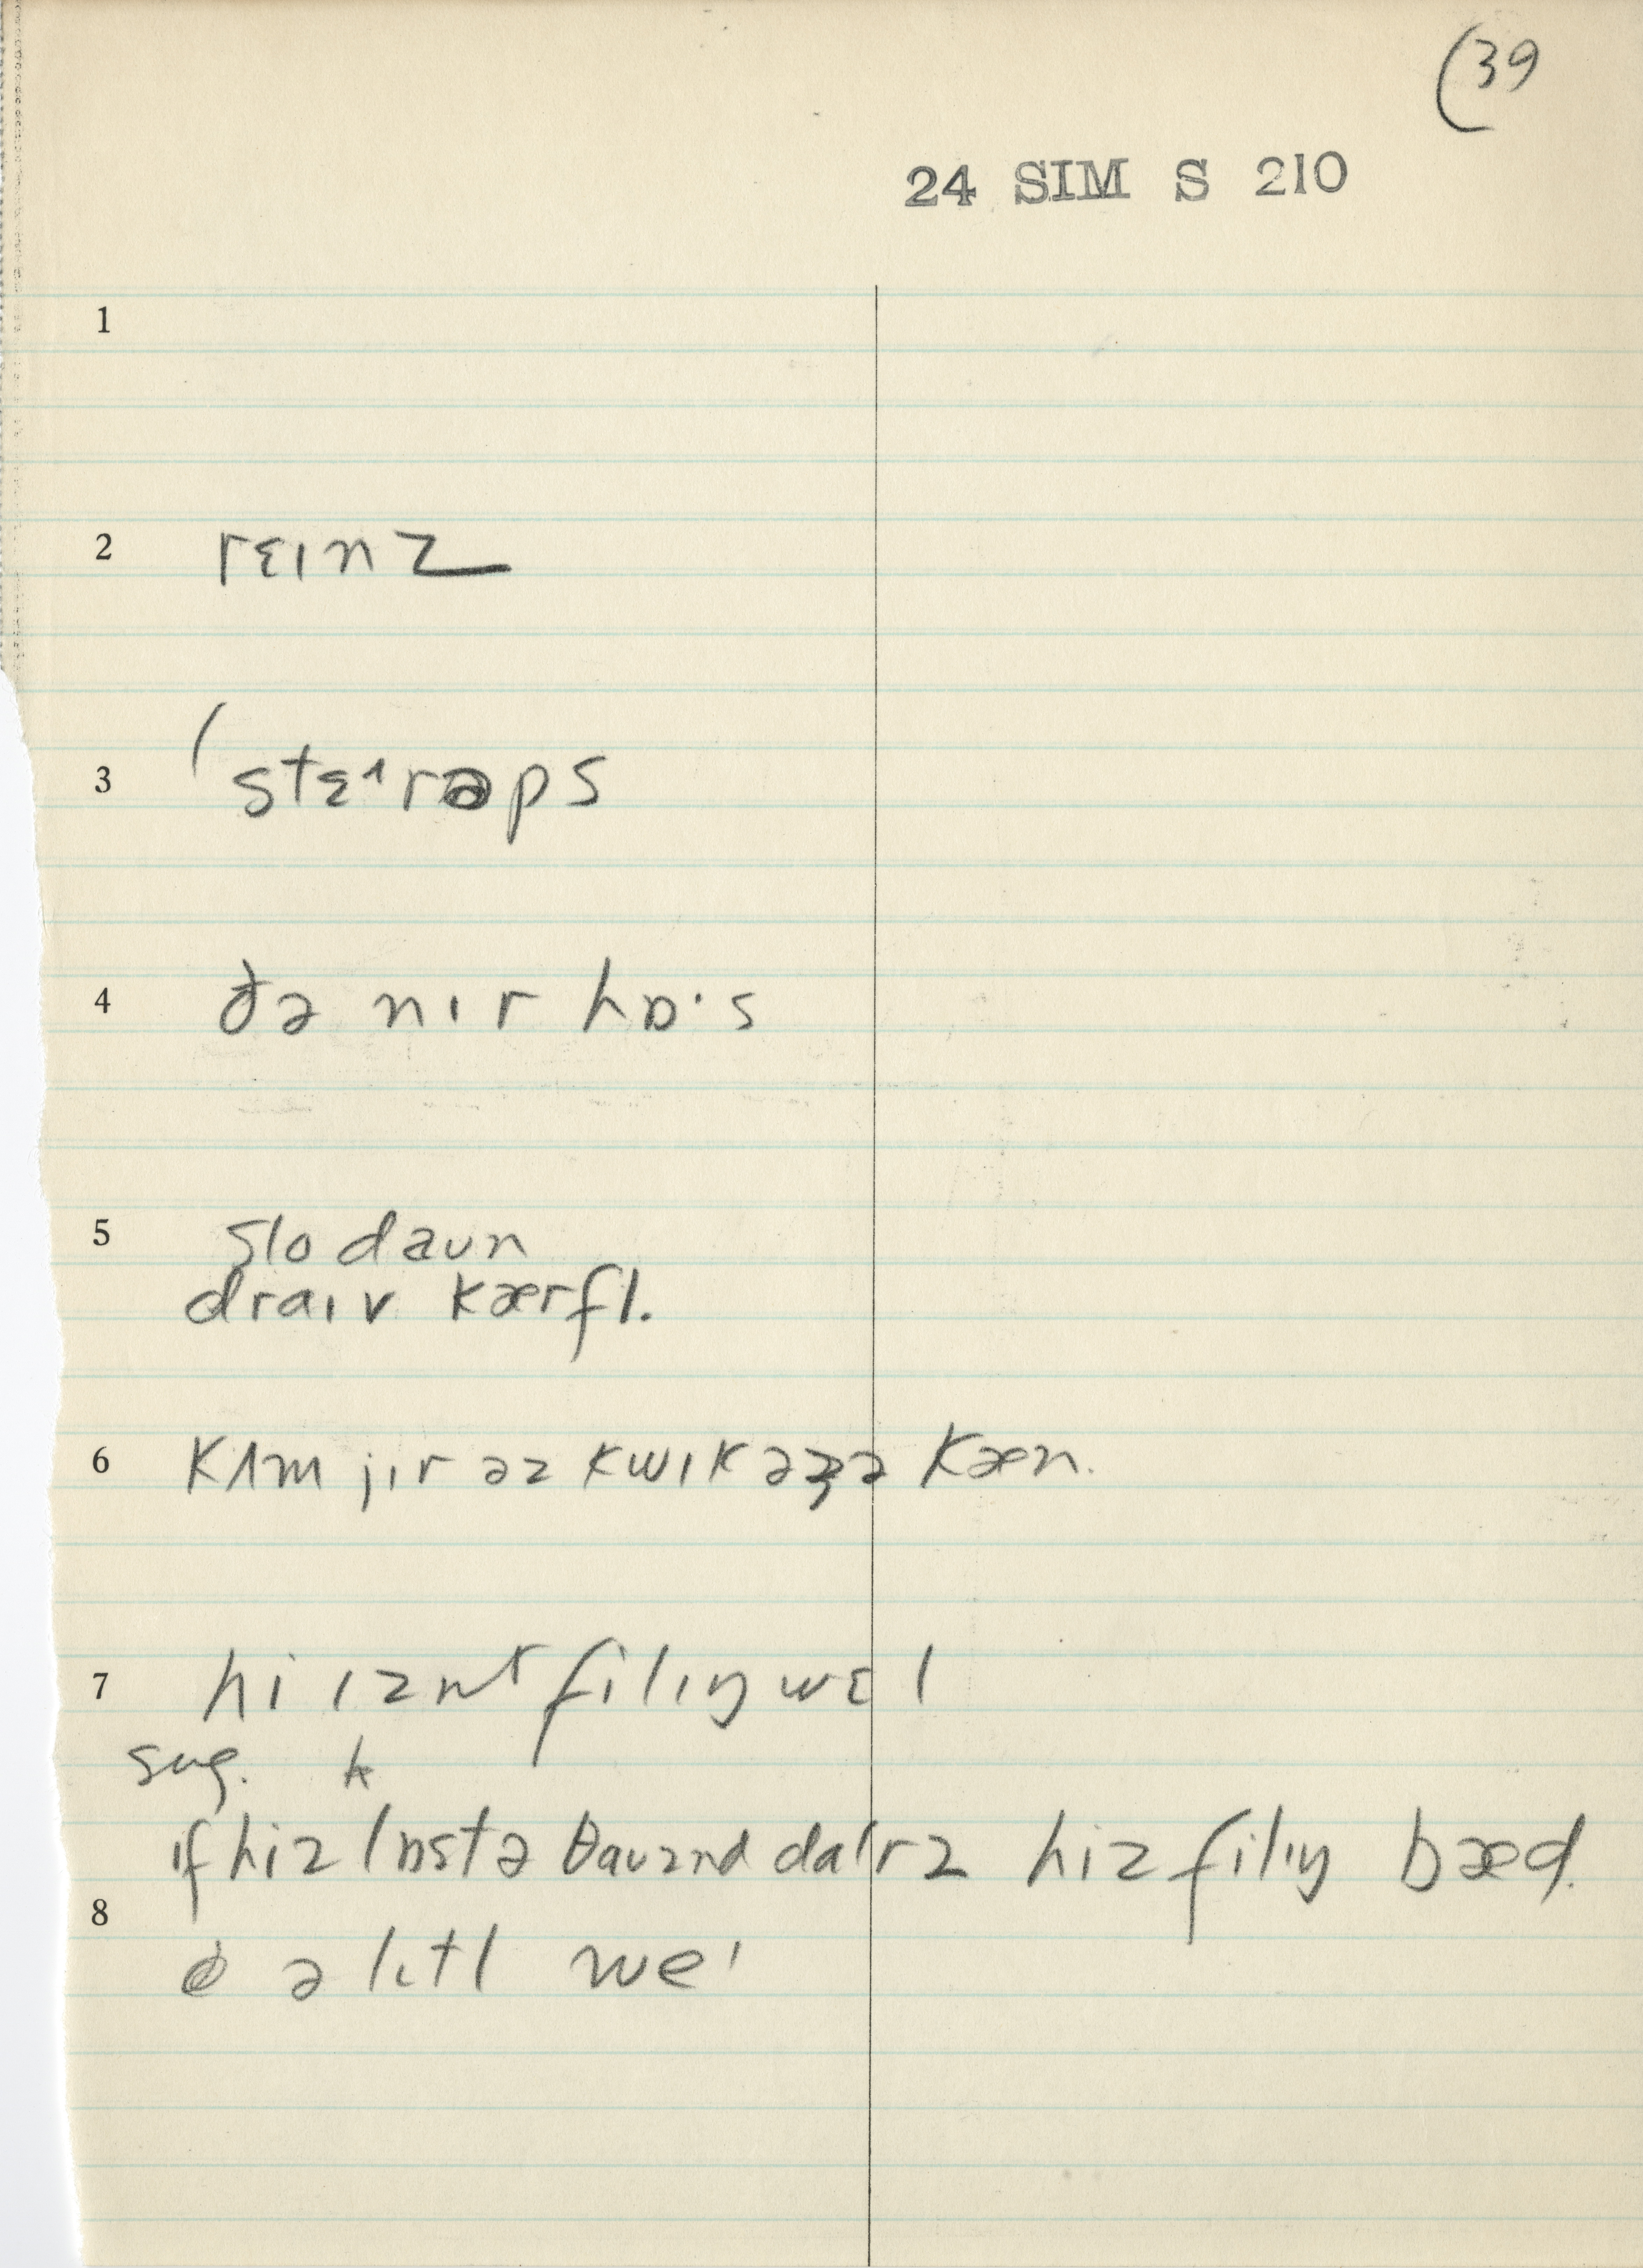 (39
24 SIM S 210
1
2 rɛɪnz
3 (stɛɪrəps
4 ðə nɪr hɒ·s
5 slo daun
draɪv kærfl.
6 kʌm jɪr əz kwɪk əʒə kæn.
7 hi ɪznt filɪŋ wɛl
sug. k
ɪf hiz lɒstə θauznd dalrz hiz filɪŋ bæd.
8
ə lɪtl we'